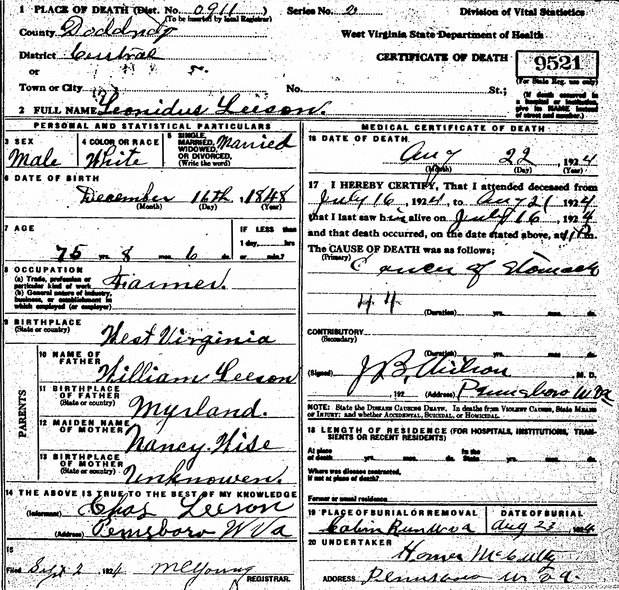 1 PLACE OF DEATH (Dist. No. 0911 Series No. Division of Vital Statistics
(To be inserted by local Registrar)
County Doddridge West Virginia State Department of Health
District Central CERTIFICATE OF DEATH 9521
or (For State Reg. use only)
Town or City No. St.; (If death occurred in a hospital or institution give its NAME instead of street and number.)
2 FULL NAME Leonidus Leeson.
PERSONAL AND STATISTICAL PARTICULARS
3 SEX Male
4 COLOR OR RACE White
5 SINGLE, MARRIED, WIDOWED, OR DIVORCED. (Write the word) Married
6 DATE OF BIRTH
December 16th, 1848
(Month) (Day) (Year)
7 AGE IF LESS than
75 yrs. 8 mos. 6 ds. 1 day, hrs. or min.?
8 OCCUPATION
(a) Trade, profession or particular kind of work Farmer.
(b) General nature of industry, business, or establishment in which employed (or employer)
9 BIRTHPLACE
(State or country) West Virginia
PARENTS
10 NAME OF FATHER William Leeson
11 BIRTHPLACE OF FATHER
(State or country) Myrland.
12 MAIDEN NAME OF MOTHER Nancy Wise
13 BIRTHPLACE OF MOTHER
(State or country) Unknowen.
14 THE ABOVE IS TRUE TO THE BEST OF MY KNOWLEDGE
(Informant) Chas Leeson
(Address) Pennsboro W Va
15
Filed Sept 2, 1924 M C Young
REGISTRAR.
MEDICAL CERTIFICATE OF DEATH
16 DATE OF DEATH
Aug 22, 1924
(Month) (Day) (Year)
17 I HEREBY CERTIFY, That I attended deceased from
July 16, 1924, to Aug 21, 1924
that I last saw him alive on July 16, 1924
and that death occurred, on the date stated above, at m.
The CAUSE OF DEATH was as follows:
(Primary) Cancer of Stomach
44
(Duration) yrs. mos. ds.
CONTRIBUTORY
(Secondary)
(Duration) yrs. mos. ds.
(Signed) J B Wilson M. D.
, 192 (Address) Pennsboro W Va
NOTE: State the DISEASE CAUSING DEATH. In deaths from VIOLENT CAUSES, State MEANS OF INJURY; and whether ACCIDENTAL, SUICIDAL, or HOMICIDAL.
18 LENGTH OF RESIDENCE (FOR HOSPITALS, INSTITUTIONS, TRANSIENTS OR RECENT RESIDENTS)
At place of death yrs. mos. ds. In the State yrs. mos. ds.
Where was disease contracted, if not at place of death?
Former or usual residence
19 PLACE OF BURIAL OR REMOVAL DATE OF BURIAL
Run W va Aug 23, 1924
20 UNDERTAKER
Homer McCully
ADDRESS Pennsboro W Va.